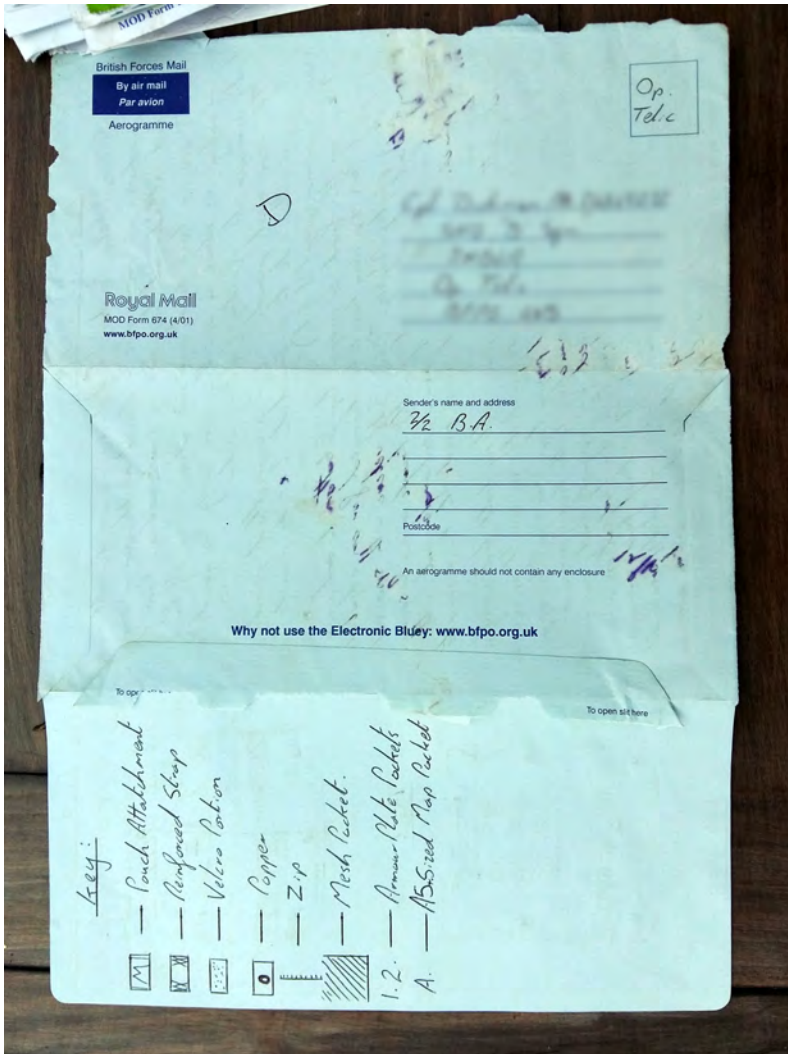 MOD Form
British Forces Mail
By air mail
Par avion
Aerogramme
Op.
Telic
D
Royal Mail
MOD Form 674 (4/01)
www.bfpo.org.uk
Sender's name and address
2/2 B.A.
Postcode
An aerogramme should not contain any enclosure
Why not use the Electronic Bluey: www.bfpo.org.uk
To op
To open slit here
Key:
M — Pouch Attatchment
— Reinforced Strap
— Velcro Portion
— Popper
— Zip
— Mesh Pocket.
1. 2. — Armour Plate Pockets
A. — A5 Sized Map Pocket